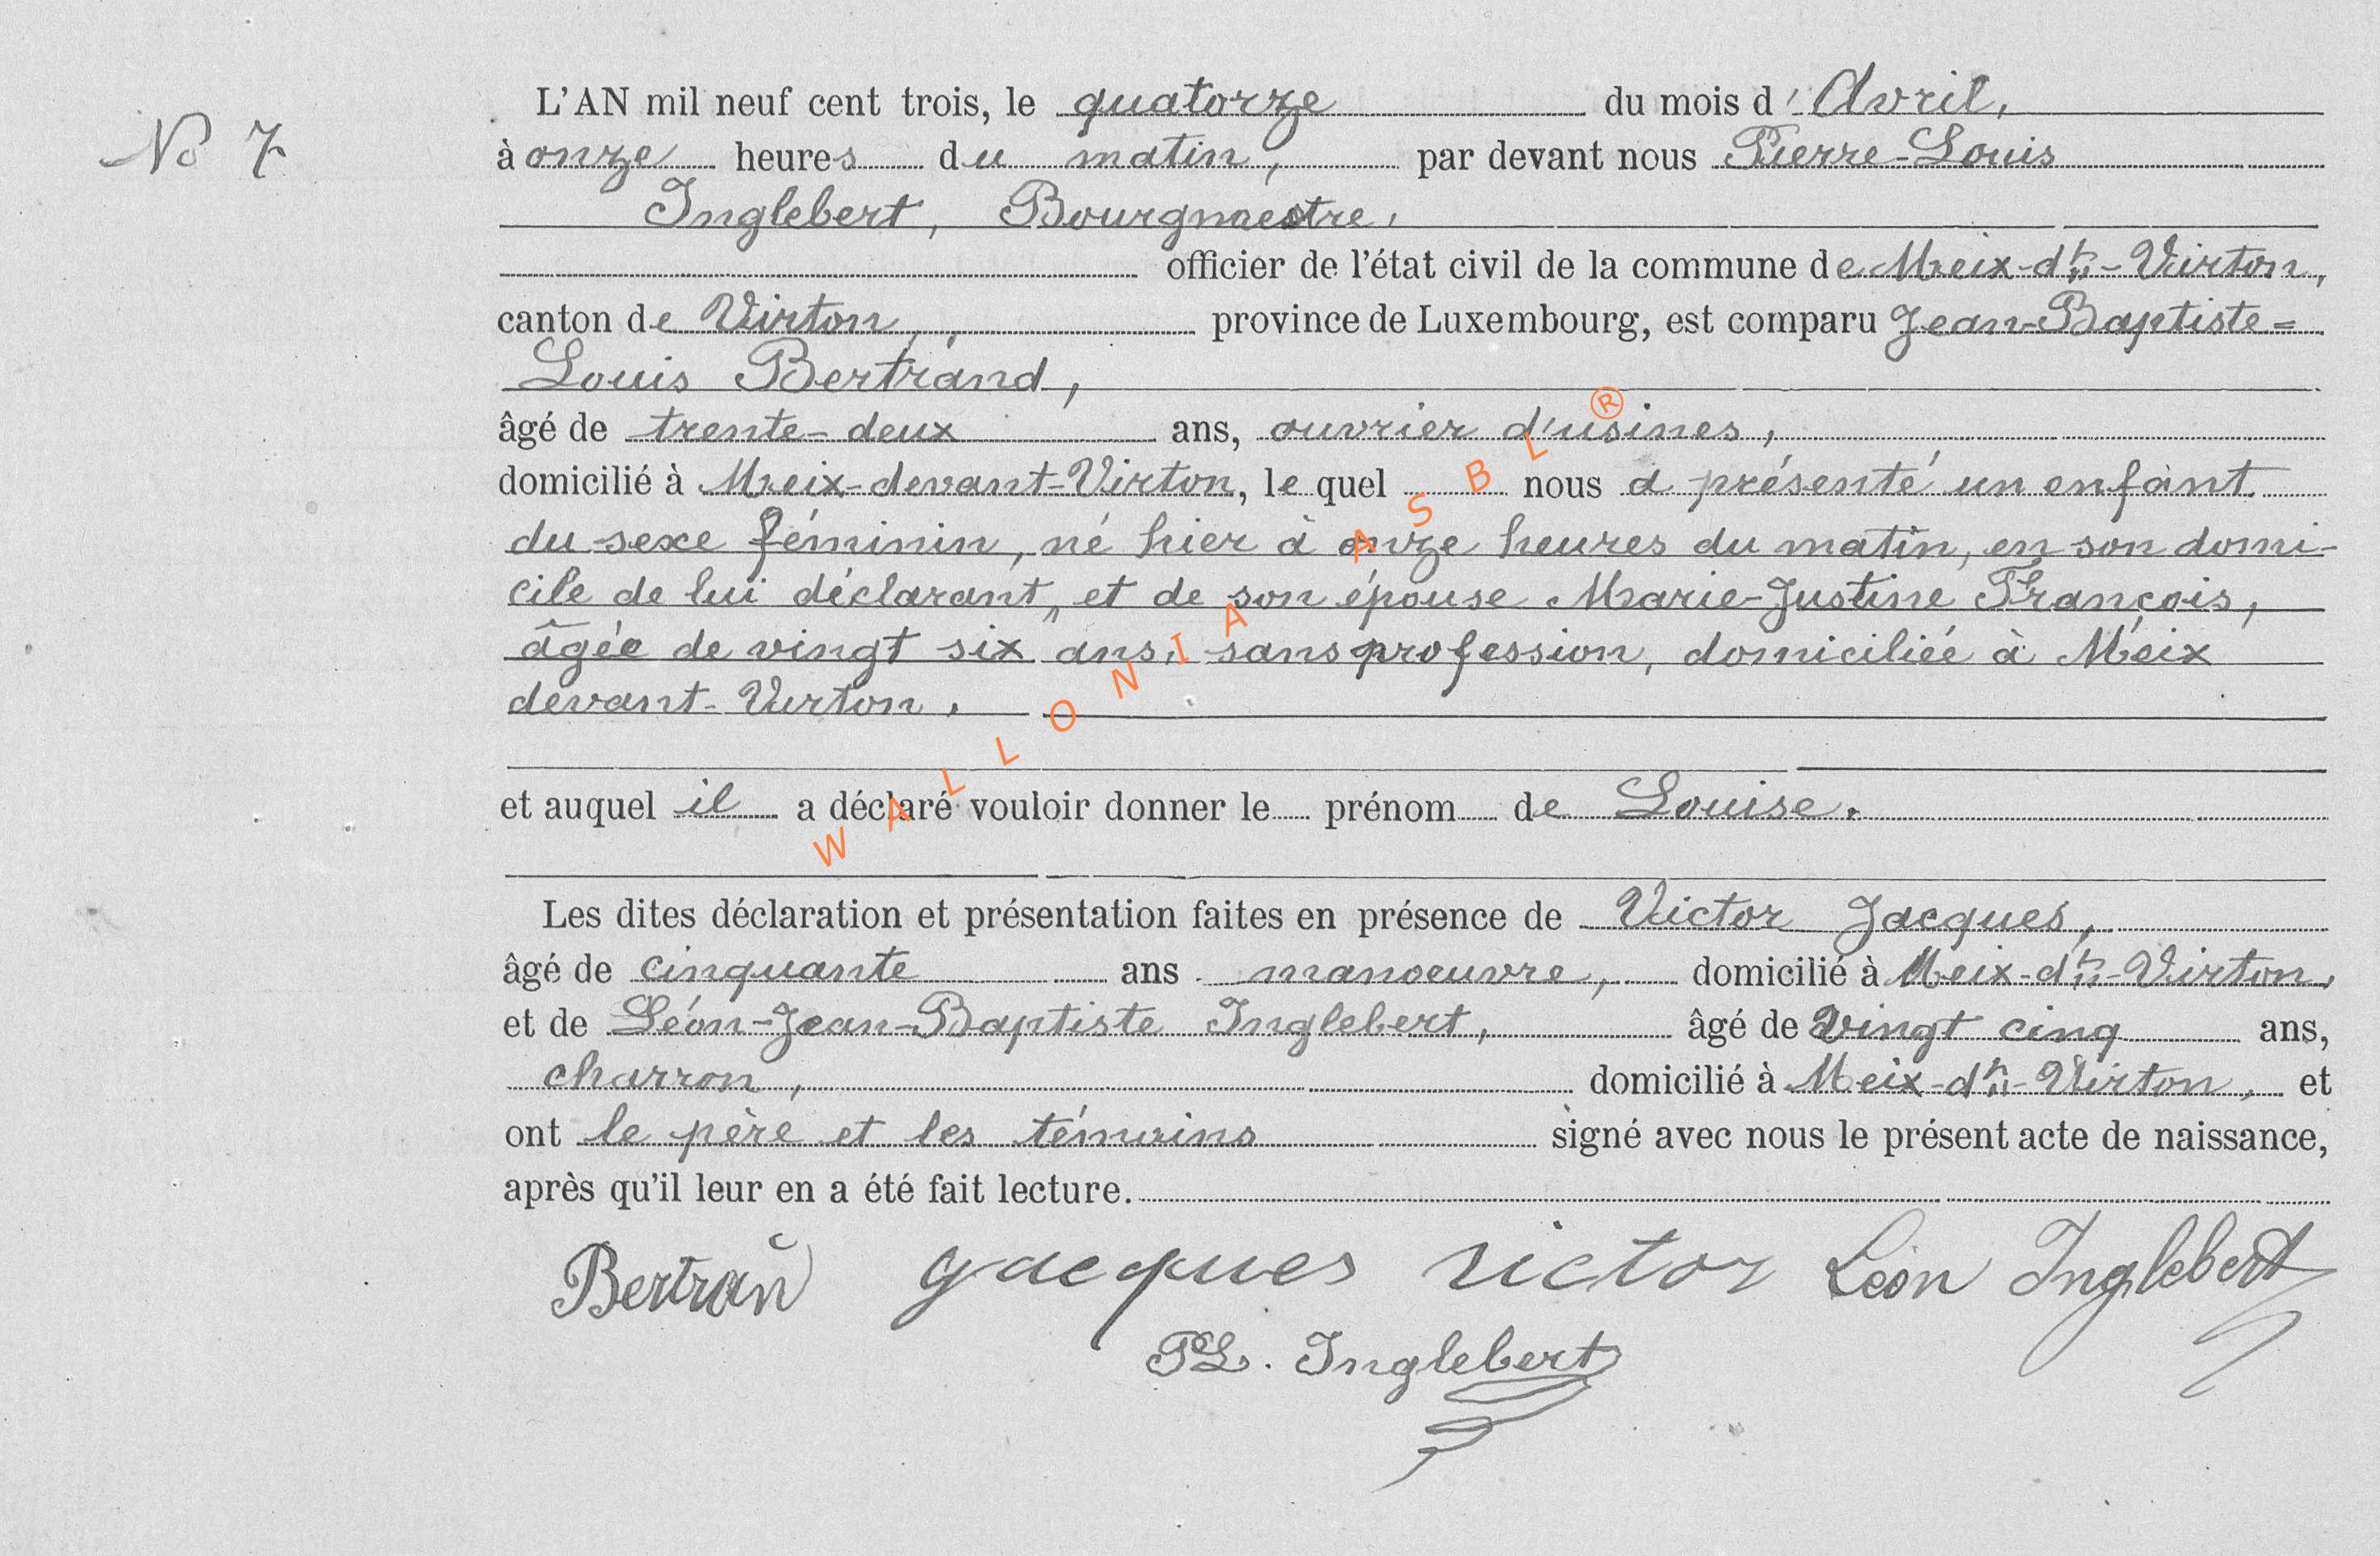 No 7
L'AN mil neuf cent trois, le quatorze du mois d'Avril,
à onze heures du matin, par devant nous Pierre-Louis
Inglebert, Bourgmestre,
officier de l'état civil de la commune de Meix-dt-Virton,
canton de Virton, province de Luxembourg, est comparu Jean-Baptiste-
Louis Bertrand,
âgé de trente-deux ans, ouvrier d'usines,
domicilié à Meix-devant-Virton, le quel nous a présenté un enfant
du sexe féminin, né hier à onze heures du matin, en son domi-
cile de lui déclarant, et de son épouse Marie-Justine François,
âgée de vingt six ans, sans profession, domiciliée à Meix
devant-Virton.
et auquel il a déclaré vouloir donner le prénom de Louise.
Les dites déclaration et présentation faites en présence de Victor Jacques,
âgé de cinquante ans manoeuvre, domicilié à Meix-dt-Virton,
et de Léon-Jean-Baptiste Inglebert, âgé de vingt cinq ans,
charron, domicilié à Meix-dt-Virton, et
ont le père et les témoins signé avec nous le présent acte de naissance,
après qu'il leur en a été fait lecture.
Bertran Jacques victor Léon Inglebert
PL. Inglebert
WALLONIA ASBL ®